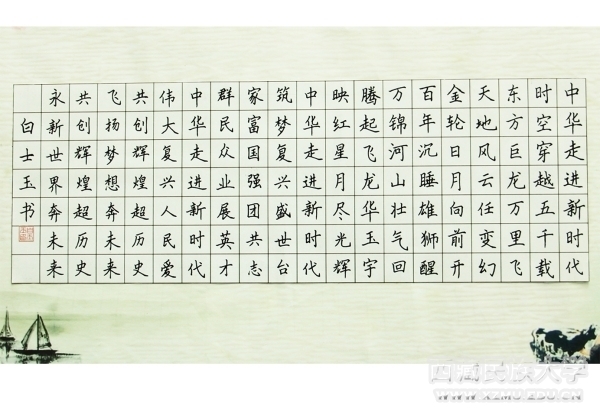 中华走进新时代
时空穿越五千载
东方巨龙万里飞
天地风云任变幻
金轮日月向前开
百年沉睡雄狮醒
万锦河山壮气回
腾起飞龙华玉宇
映红星月尽光辉
中华走进新时代
筑梦复兴盛世台
家富国强团共志
群民众业展英才
中华走进新时代
伟大复兴人民爱
共创辉煌超历史
飞扬梦想奔未来
共创辉煌超历史
永新世界奔未来
白士玉书
西藏民族大学
WWW.XZMU.EDU.CN